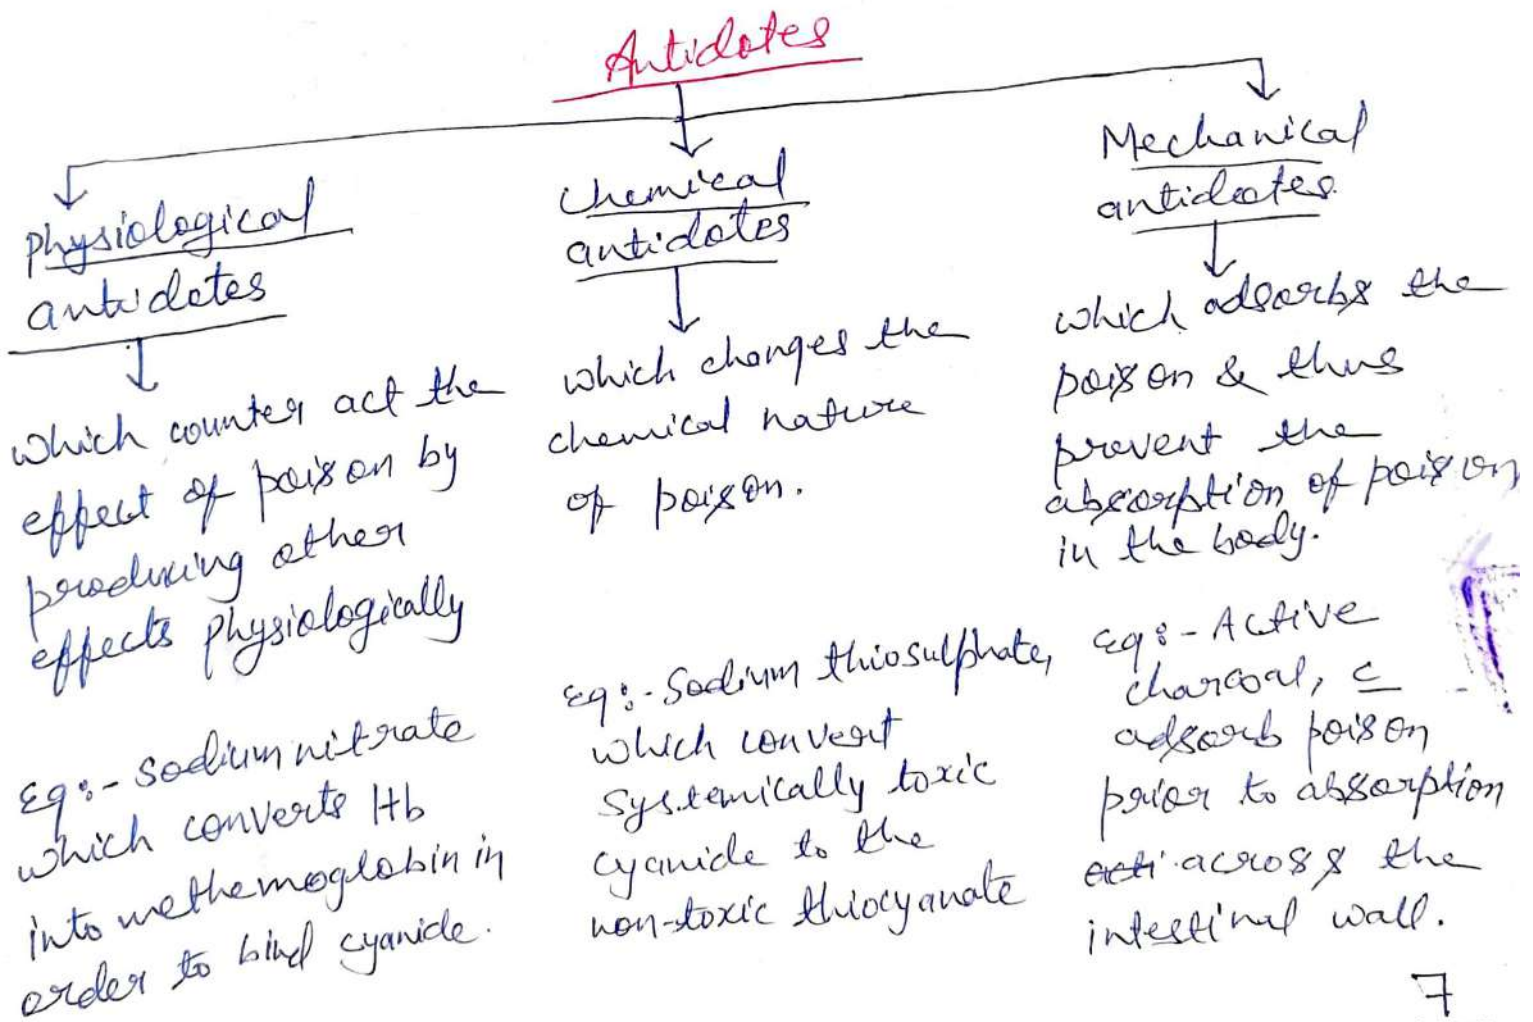 Antidotes
Physiological
antidotes
which counter act the
effect of poison by
producing other
effects physiologically
Eg:- Sodium nitrate
which converts Hb
into methemoglobin in
order to bind cyanide.
Chemical
antidotes
which changes the
chemical nature
of poison.
Eg:- Sodium thiosulphate,
which convert
systemically toxic
cyanide to the
non-toxic thiocyanate
Mechanical
antidotes
which adsorbs the
poison & thus
prevent the
absorption of poison
in the body.
Eg:- Active
charcoal, c
adsorb poison
prior to absorption
across the
intestinal wall.
7